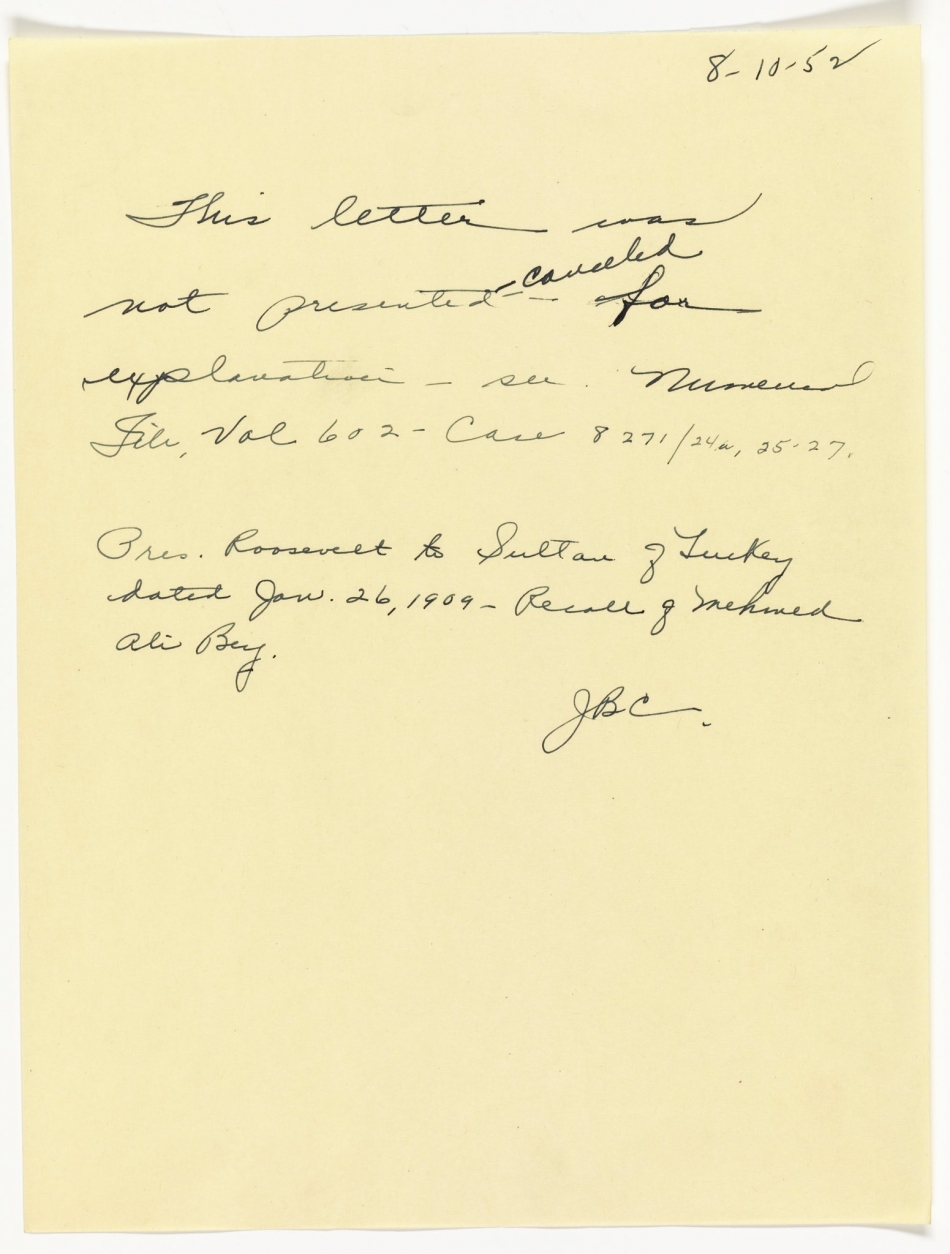 8-10-52
This letter was
not presented - canceled - for
explanation - see Numerical
File, Vol 602 - Case 8271/24a, 25-27.
Pres. Roosevelt to Sultan of Turkey
dated Jan. 26, 1909 - Recall of Mehmed
Ali Bey.
JBC.